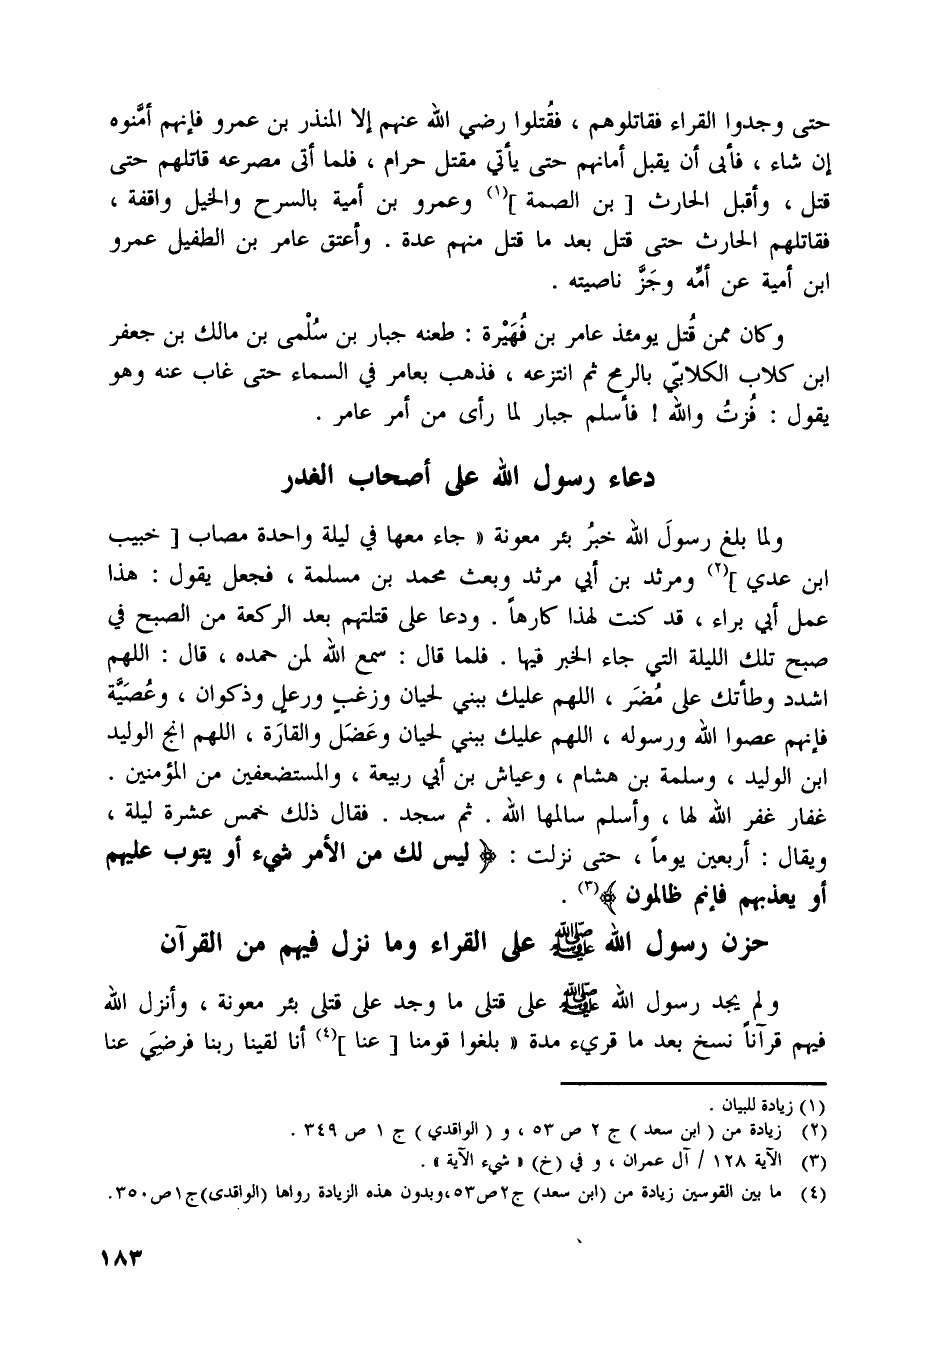 حتى وجدوا القراء فقاتلوهم ، فقُتلوا رضي الله عنهم إلا المنذر بن عمرو فإنهم أمَّنوه
إن شاء ، فأبى أن يقبل أمانهم حتى يأتي مقتل حرام ، فلما أتى مصرعه قاتلهم حتى
قتل ، وأقبل الحارث [ بن الصمة ](١) وعمرو بن أمية بالسرح والخيل واقفة ،
فقاتلهم الحارث حتى قتل بعد ما قتل منهم عدة . وأعتق عامر بن الطفيل عمرو
ابن أمية عن أمِّه وجَزَّ ناصيته .
وكان ممن قُتل يومئذ عامر بن فُهَيْرة : طعنه جبار بن سُلْمى بن مالك بن جعفر
ابن كلاب الكلابيّ بالرمح ثم انتزعه ، فذهب بعامر في السماء حتى غاب عنه وهو
يقول : فُزتُ والله ! فأسلم جبار لما رأى من أمر عامر .
دعاء رسول الله على أصحاب الغدر
ولما بلغ رسولَ الله خبرُ بئر معونة « جاء معها في ليلة واحدة مصاب [ خبيب
ابن عدي ](٢) ومرثد بن أبي مرثد وبعث محمد بن مسلمة ، فجعل يقول : هذا
عمل أبي براء ، قد كنت لهذا كارهاً . ودعا على قتلتهم بعد الركعة من الصبح في
صبح تلك الليلة التي جاء الخبر فيها . فلما قال : سمع الله لمن حمده ، قال : اللهم
اشدد وطأتك على مُضَر ، اللهم عليك ببني لحيان وزغبٍ ورعلٍ وذكوان ، وعُصَيَّة
فإنهم عصوا الله ورسوله ، اللهم عليك ببني لحيان وعَضَل والقارَة ، اللهم انج الوليد
ابن الوليد ، وسلمة بن هشام ، وعياش بن أبي ربيعة ، والمستضعفين من المؤمنين .
غفار غفر الله لها ، وأسلم سالمها الله . ثم سجد . فقال ذلك خمس عشرة ليلة ،
ويقال : أربعين يوماً ، حتى نزلت : ﴿ ليس لك من الأمر شيء أو يتوب عليهم
أو يعذبهم فإنم ظالمون ﴾(٣) .
حزن رسول الله ﷺ على القراء وما نزل فيهم من القرآن
ولم يجد رسول الله ﷺ على قتلى ما وجد على قتلى بئر معونة ، وأنزل الله
فيهم قرآناً نسخ بعد ما قريء مدة « بلغوا قومنا [ عنا ](٤) أنا لقينا ربنا فرضيَ عنا
(١) زيادة للبيان .
(٢) زيادة من ( ابن سعد ) ج ٢ ص ٥٣ ، و ( الواقدي ) ج ١ ص ٣٤٩ .
(٣) الآية ١٢٨ / آل عمران ، و في (خ) « شيء الآية » .
(٤) ما بين القوسين زيادة من (ابن سعد) ج٢ص٥٣،وبدون هذه الزيادة رواها (الواقدى)ج١ص٣٥٠.
١٨٣